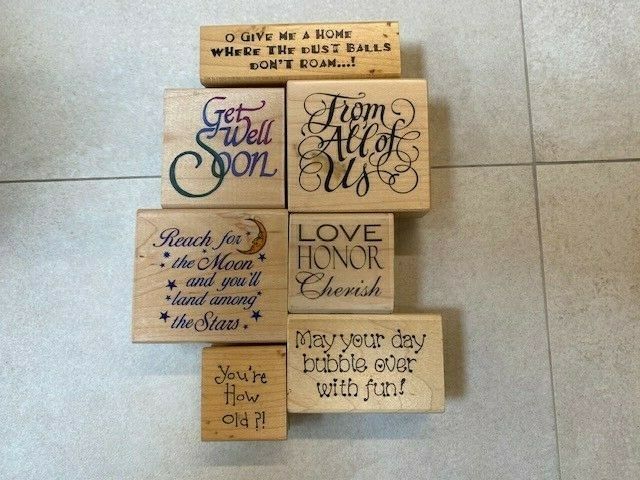 O GIVE ME A HOME
WHERE THE DUST BALLS
DON'T ROAM...!
Get
Well
Soon
From
All of
Us
Reach for
the Moon
and you'll
land among
the Stars.
LOVE
HONOR
Cherish
May your day
bubble over
with fun!
You're
How
old ?!